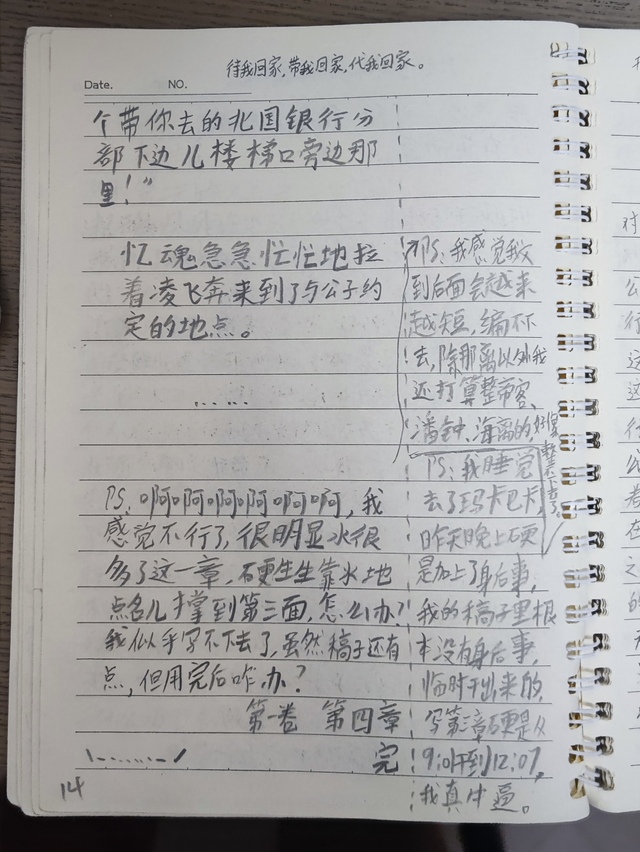 待我回家,带我回家,代我回家。
Date. NO.
个带你去的北国银行分
部下边儿楼梯口旁边那
里!”
忆魂急急忙忙地拉
着凌飞奔来到了与公子约
定的地点。
......
PS:啊啊啊啊啊啊,我
感觉不行了,很明显水很
多了这一章,硬生生靠水地
点名儿撑到第三面,怎么办?
我似乎写不下去了,虽然稿子还有
点,但用完后咋办?
第一卷 第四章
完
14
PS:我感觉我
到后面会越来
越短,编不下
去,除那离以外我
还打算整带客、
潘钟、海离的,好像
整不下去了。
PS:我睡觉
去了玛卡巴卡,
昨天晚上硬
是加上了身后事,
我的稿子里根
本没有身后事,
临时干出来的,
写第三章硬是从
9:01干到12:07,
我真牛逼。